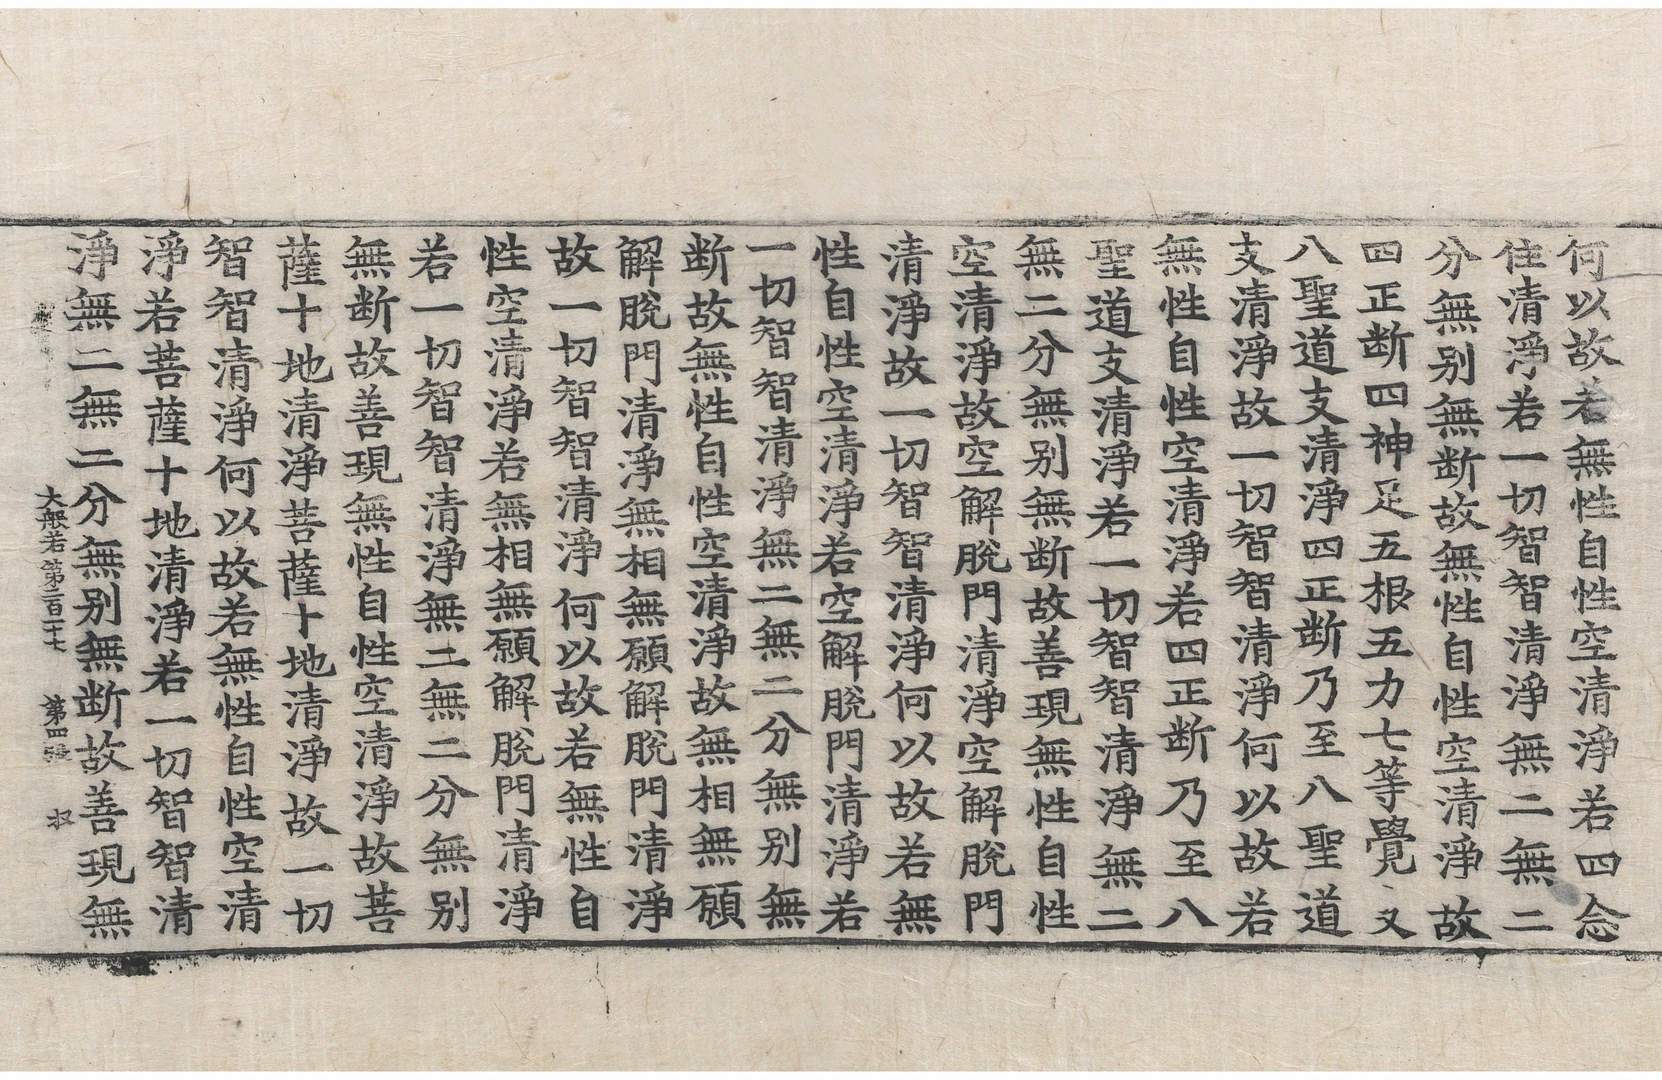 何以故若無性自性空清淨若四念
住清淨若一切智智清淨無二無二
分無别無断故無性自性空清淨故
四正断四神足五根五力七等覺支
八聖道支清淨四正断乃至八聖道
支清淨故一切智智清淨何以故若
無性自性空清淨若四正断乃至八
聖道支清淨若一切智智清淨無二
無二分無别無断故善現無性自性
空清淨故空解脫門清淨空解脫門
清淨故一切智智清淨何以故若無
性自性空清淨若空解脫門清淨若
一切智智清淨無二無二分無别無
断故無性自性空清淨故無相無願
解脫門清淨無相無願解脫門清淨
故一切智智清淨何以故若無性自
性空清淨若無相無願解脫門清淨
若一切智智清淨無二無二分無别
無断故善現無性自性空清淨故菩
薩十地清淨菩薩十地清淨故一切
智智清淨何以故若無性自性空清
淨若菩薩十地清淨若一切智智清
淨無二無二分無别無断故善現無
大般若第二百二十七 第四張